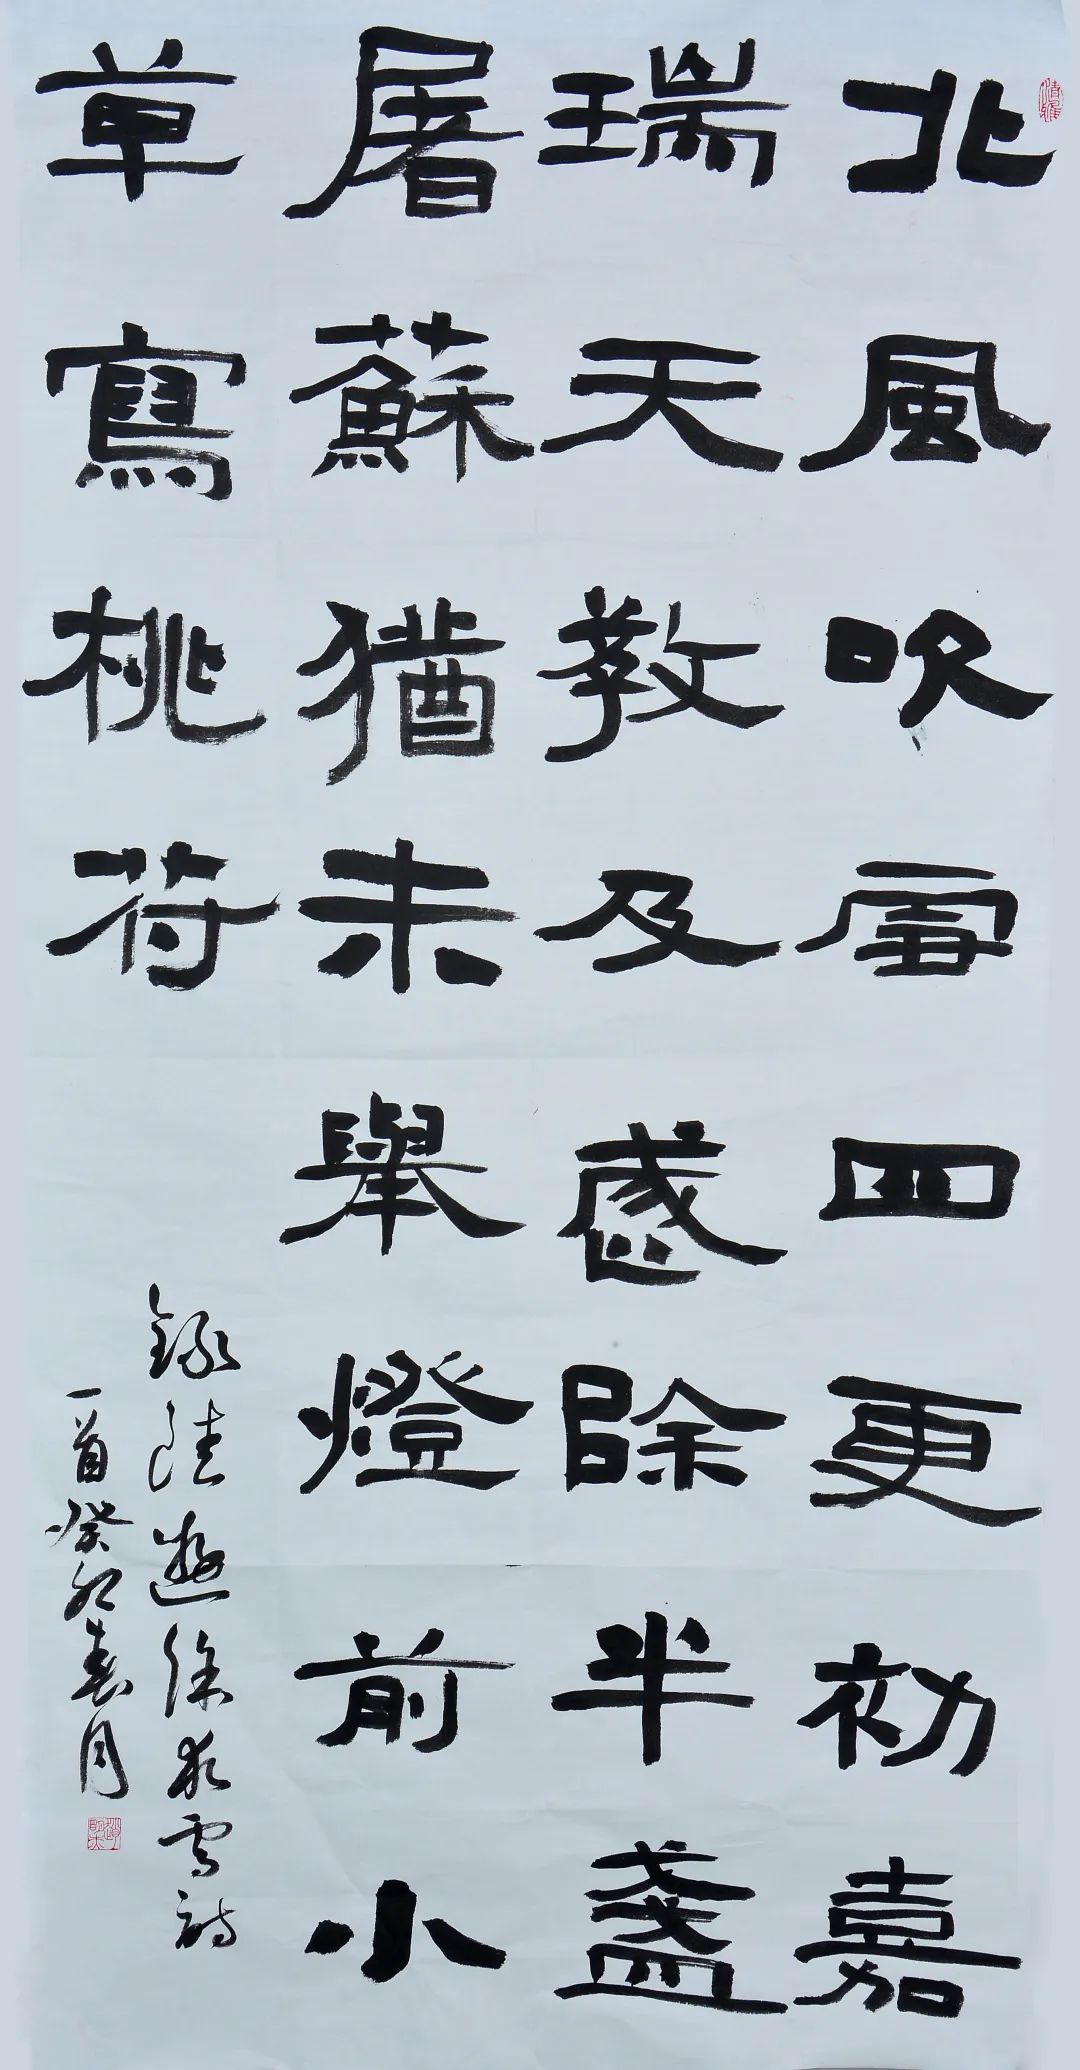 北風吹雪四更初嘉
瑞天教及歲除半盞
屠蘇猶未舉燈前小
草寫桃符
錄陸遊除夜雪詩
一首癸卯春月